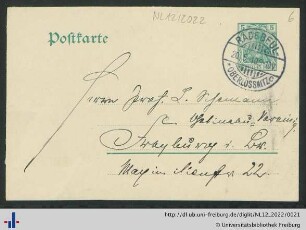 NL12/2022
6
Postkarte
RADEBEUL
OBERLÖSSNITZ
5
Herrn Prof. L. Schemann
Gobineau-Vereinig
Freyburg i. Br.
22
http://dl.ub.uni-freiburg.de/diglit/NL12_2022/0021
Universitätsbibliothek Freiburg